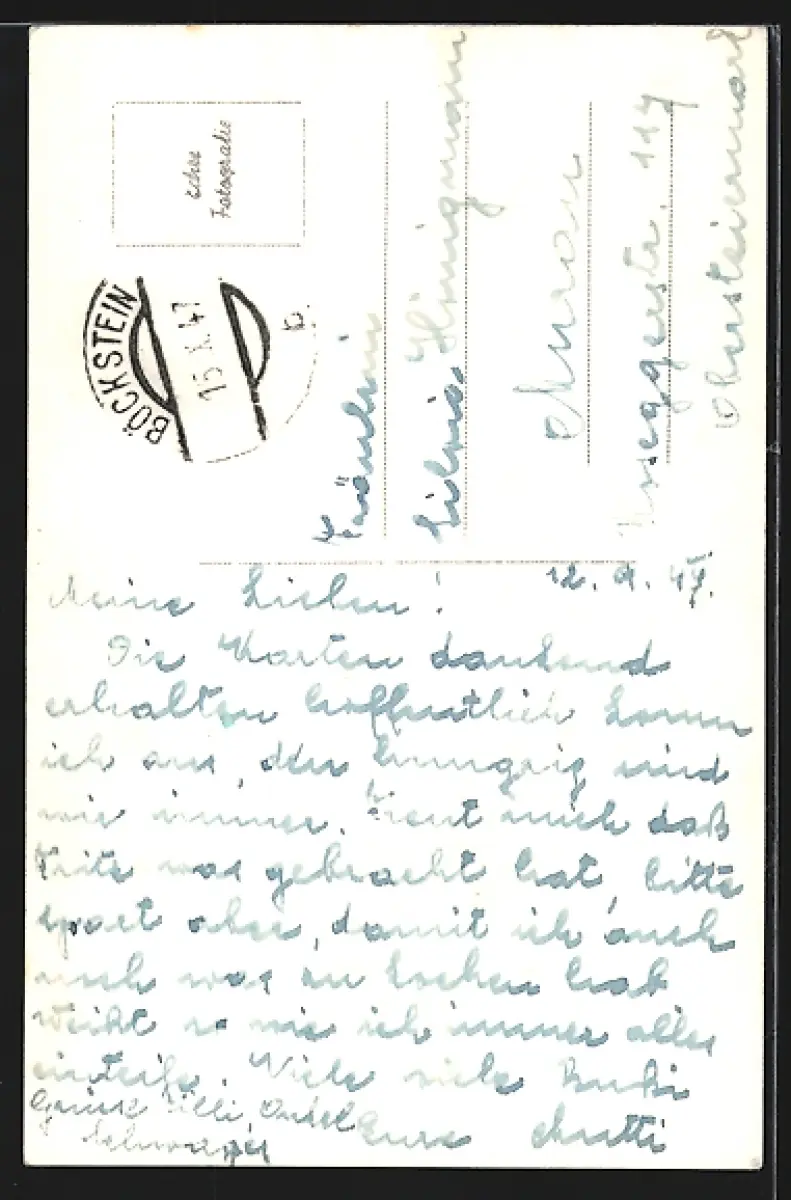 echte
Fotografie
BÖCKSTEIN
15.X.47
b
Fräulein
Silvia Hönigmann
Murau
Roseggerstr. 114
Obersteiermark
12. 9. 47.
Meine Lieben!
Die Karten dankend
erhalten hoffentlich komm
ich aus, den hungrig sind
wie immer. Freut mich daß
Fritz was gebracht hat, bitte
spart aber, damit ich auch
noch was zu kochen hab
wie ich immer alles
einteile. Viele viele Bussi
Eure Mutti
Grüsse Onkel
Schwager